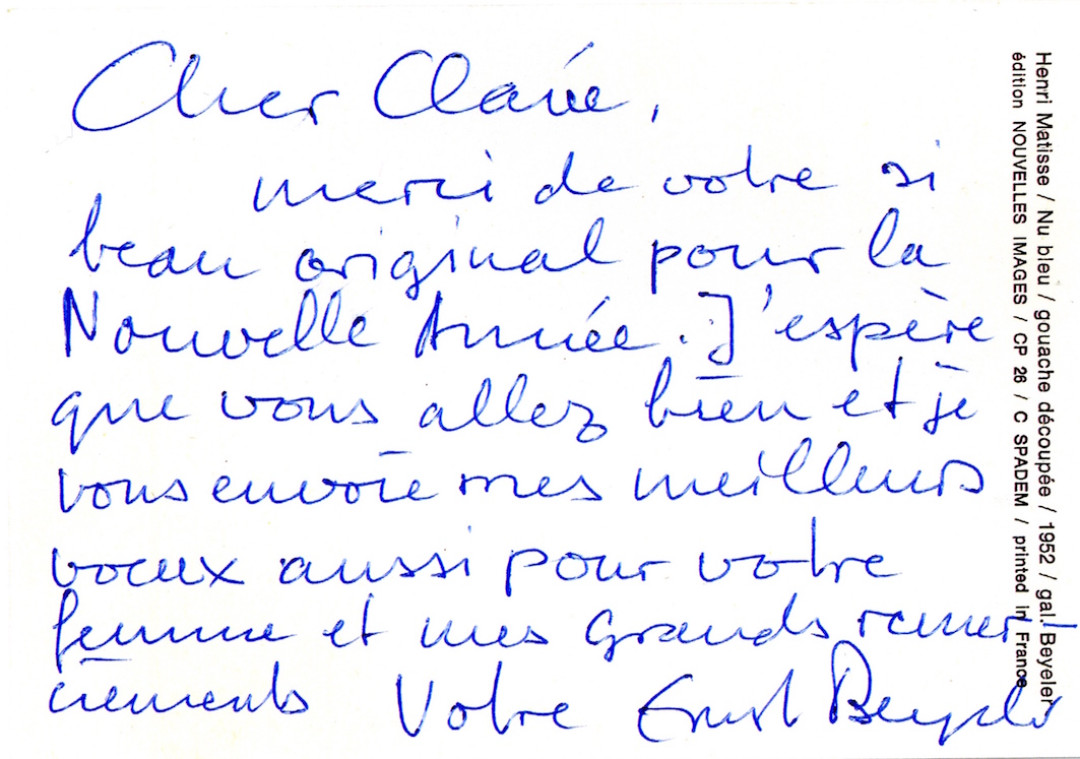 Cher Clavé,
merci de votre si
beau original pour la
Nouvelle Année. J'espère
que vous allez bien et je
vous envoie mes meilleurs
voeux aussi pour votre
femme et mes grands remer-
ciements Votre Ernst Beyeler
Henri Matisse / Nu bleu / gouache découpée / 1952 / gal. Beyeler
édition NOUVELLES IMAGES / CP 26 / C SPADEM / printed in France